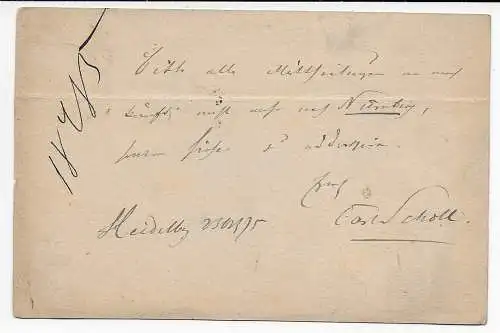 Bitte alle Mittheilungen an mich
künftig nicht mehr nach Nürnberg,
sondern hieher zu adressiren.
Carl Scholl.
Heidelbg
1875